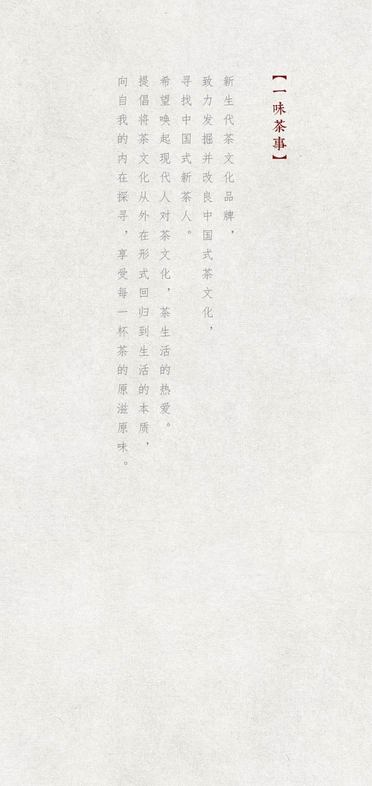 【一味茶事】
新生代茶文化品牌，
致力发掘并改良中国式茶文化，
寻找中国式新茶人。
希望唤起现代人对茶文化，茶生活的热爱。
提倡将茶文化从外在形式回归到生活的本质，
向自我的内在探寻，享受每一杯茶的原滋原味。